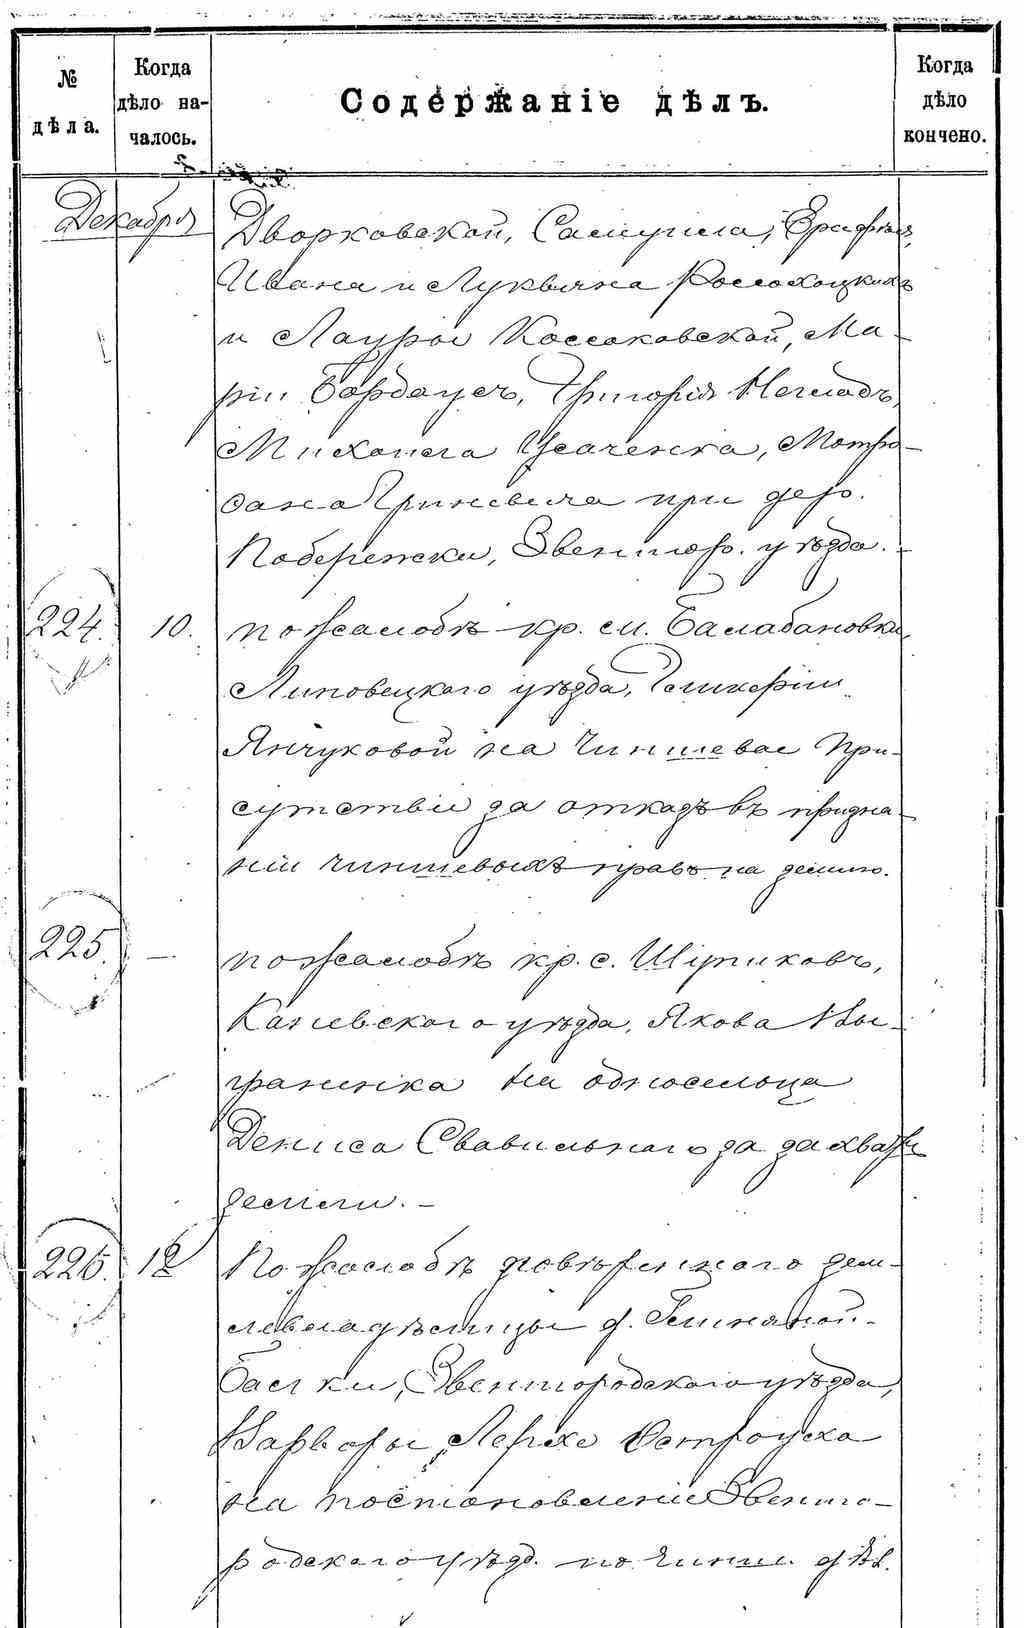 № дѣла.
Когда дѣло началось.
Содержаніе дѣлъ.
Когда дѣло кончено.
Декабря
Дворковской, Самуила,
Ивана и Лукьяна Россохоцкихъ
и Лауры Коссаковской, Ма-
ріи Бордаусъ, Григорія
Михаила Усаченка,
Гриневича при дер.
Побережки, Звенигор. уѣзда. -
224. 10. по жалобѣ кр. м. Балабановки,
Липовецкаго уѣзда, Гликеріи
Янчуковой на Чиншевое При-
сутствіе за отказъ въ призна-
ніи чиншевыхъ правъ на землю.
225. — по жалобѣ кр. с. Шупиковъ,
Каневскаго уѣзда, Якова Вы-
гранника на односельца
Дениса Свавильнаго за захватъ
земли. -
226. 12 По жалобѣ повѣреннаго зем-
левладѣлицы д. Глиняной-
Балки, Звенигородскаго уѣзда,
Варвары Лерхе
на постановленіе Звениго-
родскаго уѣзд. по чинш. дѣл.